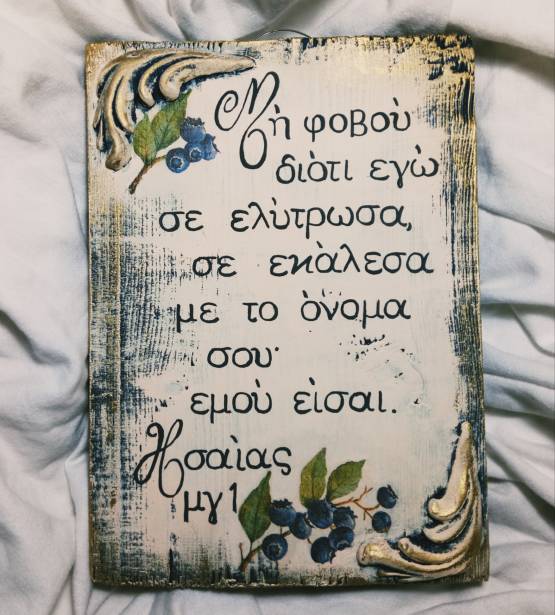 Μὴ φοβοὺ
διὸτι εγὼ
σε ελὺτρωσα,
σε εκὰλεσα
με το ὸνομα
σου·
εμοὺ εὶσαι.
Ησαὶας
μγ 1